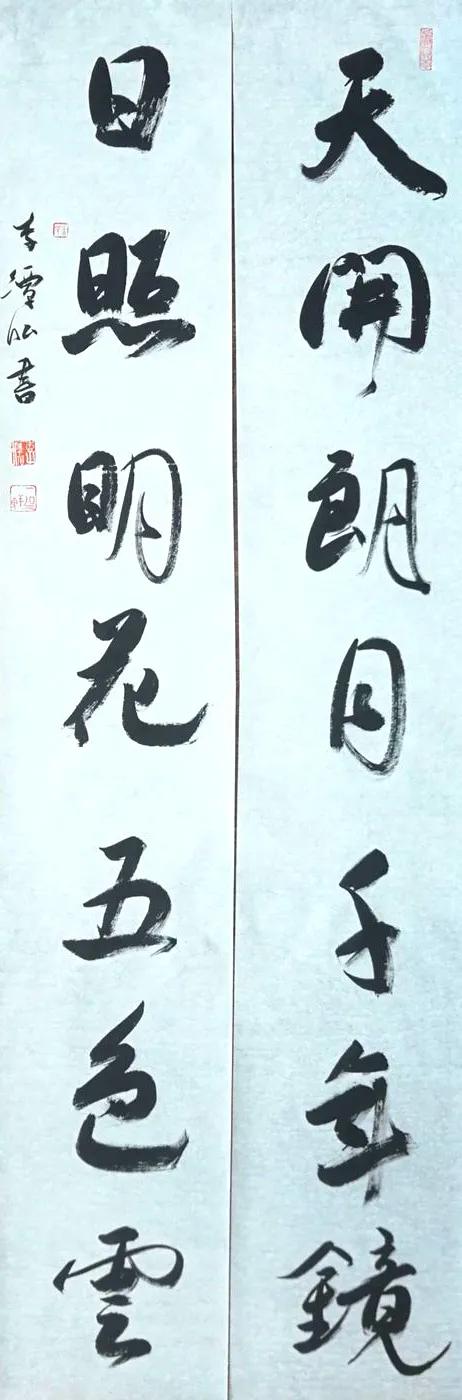 天開朗月千年鏡
日照明花五色雲
李潭山書